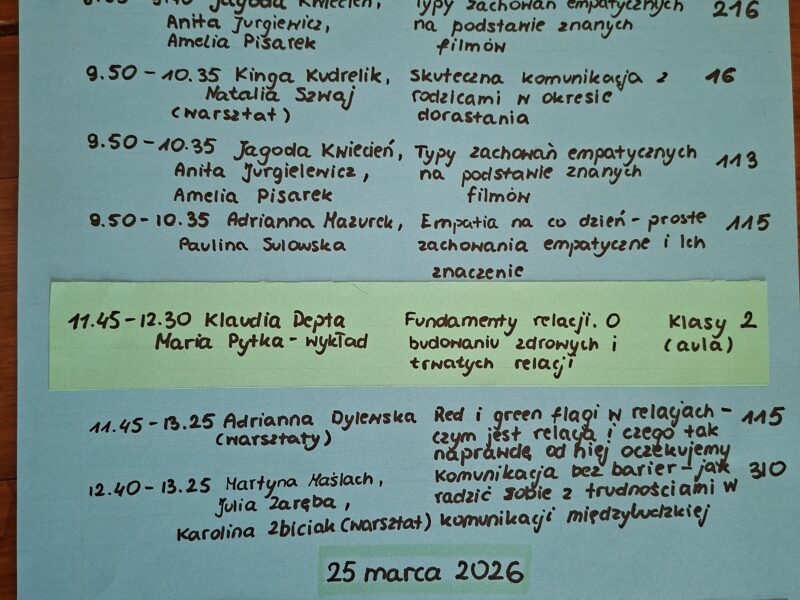 Jagoda Kwiecień, Typy zachowań empatycznych 216
Anita Jurgiewicz, na podstawie znanych
Amelia Pisarek filmów
9.50 - 10.35 Kinga Kudrelik, Skuteczna komunikacja z 16
Natalia Szwaj rodzicami w okresie
(warsztat) dorastania
9.50 - 10.35 Jagoda Kwiecień, Typy zachowań empatycznych 113
Anita Jurgielewicz, na podstawie znanych
Amelia Pisarek filmów
9.50 - 10.35 Adrianna Mazurek, Empatia na co dzień - proste 115
Paulina Sulowska zachowania empatyczne i ich
znaczenie
11.45 - 12.30 Klaudia Depta Fundamenty relacji. O Klasy 2
Maria Pytka - wykład budowaniu zdrowych i (aula)
trwałych relacji
11.45 - 13.25 Adrianna Dylewska Red i green flagi w relacjach - 115
(warsztaty) czym jest relacja i czego tak
naprawdę od niej oczekujemy
12.40 - 13.25 Martyna Maślach, Komunikacja bez barier - jak 310
Julia Zaręba, radzić sobie z trudnościami w
Karolina Zbiciak (warsztat) komunikacji międzyludzkiej
25 marca 2026